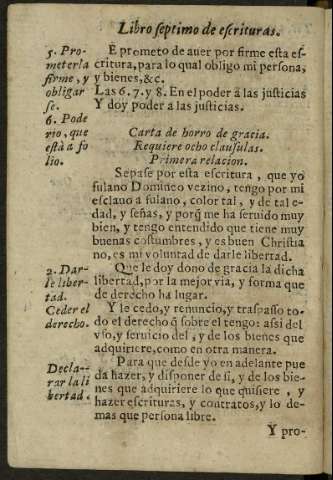 Libro septimo de escrituras.
5. Pro-
meterla
firme, y
obligar
se.
6. Pode
rio, que
està a fo
lio.
E prometo de auer por firme esta es-
critura, para lo qual obligo mi persona,
y bienes, &c.
Las 6. 7. y 8. En el poder à las justicias
Y doy poder a las justicias.
Carta de horro de gracia.
Requiere ocho clausulas.
Primera relacion.
Sepase por esta escritura, que yo
fulano Domineo vezino, tengo por mi
esclauo a fulano, color tal, y de tal e-
dad, y señas, y porq̃ me ha seruido muy
bien, y tengo entendido que tiene muy
buenas costumbres, y es buen Christia
no, es mi voluntad de darle libertad.
2. Dar-
le liber-
tad.
Ceder el
derecho.
Que le doy dono de gracia la dicha
libertad, por la mejor via, y forma que
de derecho ha lugar.
Y le cedo, y renuncio, y traspasso to-
do el derecho q̃ sobre el tengo: assi del
vso, y seruicio del, y de los bienes que
adquiriere, como en otra manera.
Decla-
rar la li
bertad.
Para que desde yo en adelante pue
da hazer, y disponer de si, y de los bie-
nes que adquiriere lo que quisiere, y
hazer escrituras, y contratos, y lo de-
mas que persona libre.
Y pro-